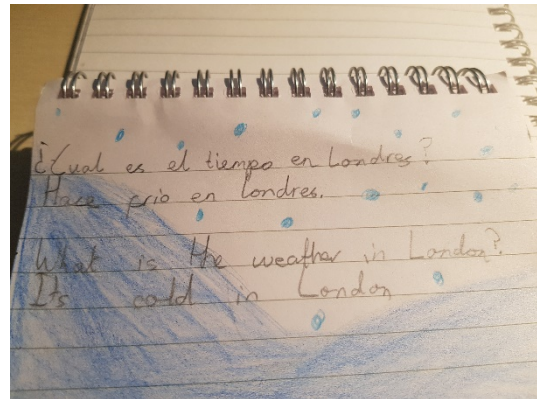 ¿Cual es el tiempo en Londres?
Hace frio en londres.
What is the weather in London?
Its could in London